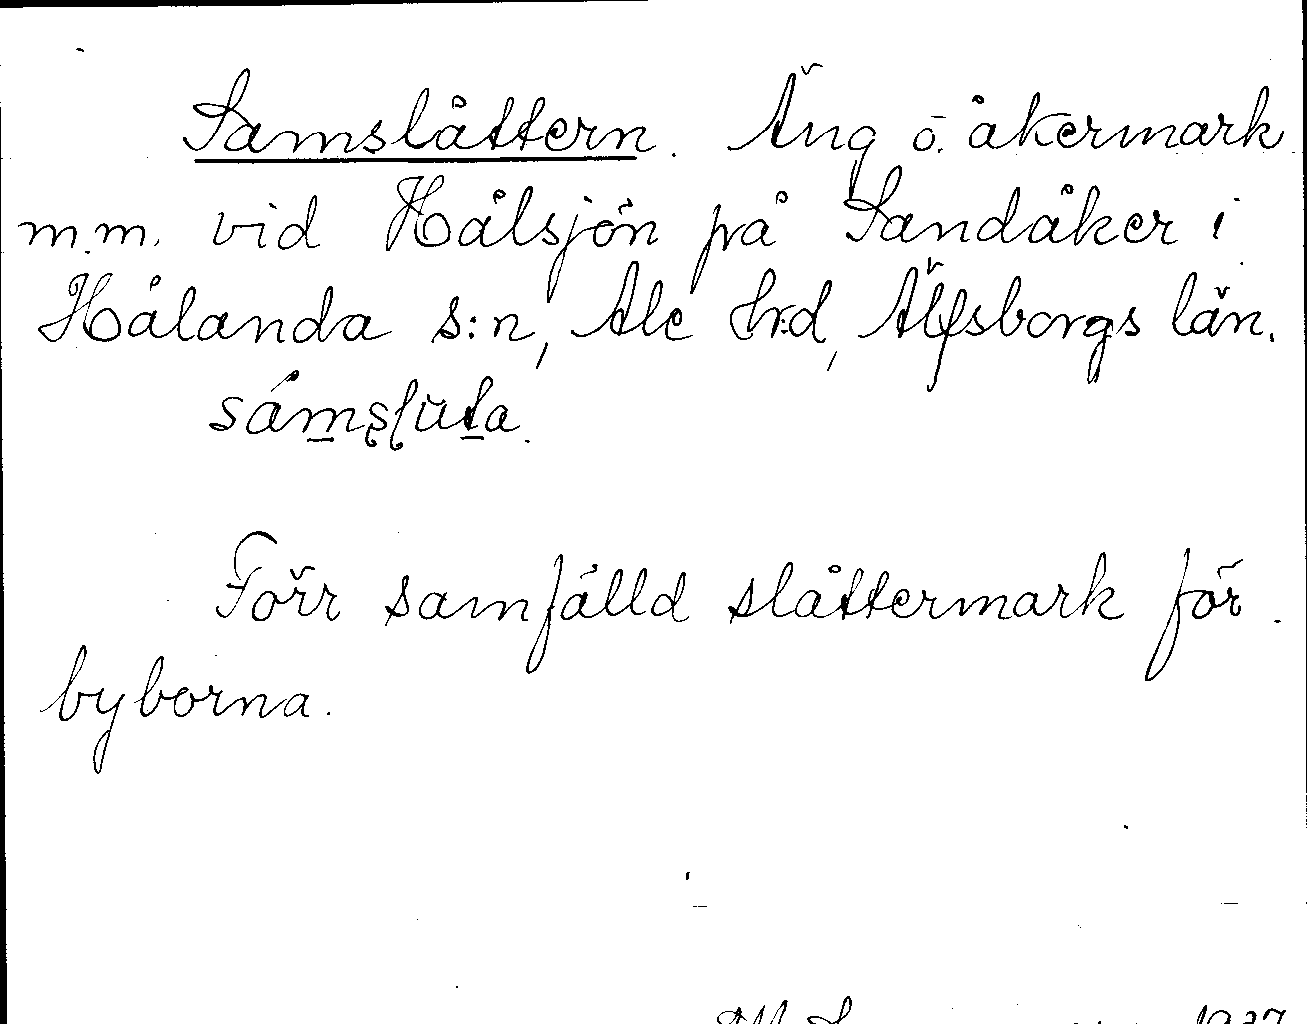 Samslåttern. Äng o. åkermark
m.m. vid Hålsjön på Sandåker i
Hålanda s:n, Ale h:d, Älfsborgs län.
Förr samfälld slåttermark för
byborna.